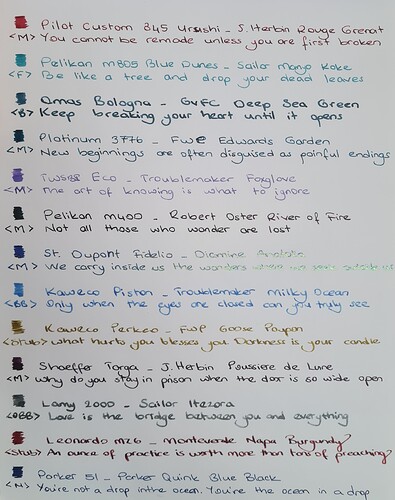 Pilot Custom 845 Urushi - J.Herbin Rouge Grenat
<M> You cannot be remade unless you are first broken
Pelikan m805 Blue Dunes - Sailor Manyo Koke
<F> Be like a tree and drop your dead leaves
Omas Bologna - GvFC Deep Sea Green
<B> Keep breaking your heart until it opens
Platinum 3776 - FWP Edwards Garden
<M> New beginnings are often disguised as painful endings
TWSBI Eco - Troublemaker Foxglove
<M> The art of knowing is what to ignore
Pelikan m400 - Robert Oster River of Fire
<M> Not all those who wonder are lost
St. Dupont Fidelio - Diamine
<M> We carry inside us the wonders
Kaweco Piston - Troublemaker Milky Ocean
<BB> Only when the eyes are closed can you truly see
Kaweco Perkeo - FWP Goose Poupon
<Stub> What hurts you blesses you. Darkness is your candle
Sheaffer Targa - J.Herbin Poussiere de Lune
<M> Why do you stay in prison when the door is so wide open
Lamy 2000 - Sailor Itezora
<OBB> Love is the bridge between you and everything
Leonardo MZG - Monteverde Napa Burgundy
<Stub> An ounce of practice is worth more than tons of preaching
Parker 51 - Parker Quink Blue Black
<M> You're not a drop in the ocean. You're the ocean in a drop